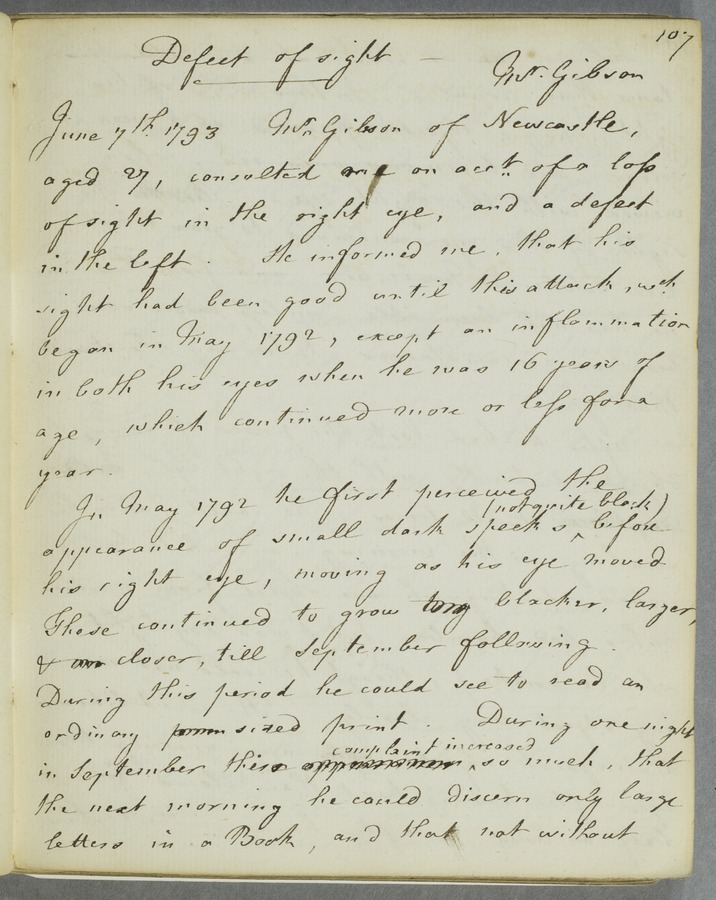 107
Defect of sight —
Mr. Gibson
June 7th. 1793 Mr. Gibson of Newcastle,
aged 27, consulted me on acct. of a loss
of sight in the right eye, and a defect
in the left. He informed me, that his
sight had been good until this attack, wch.
began in May 1792, except an inflammation
in both his eyes when he was 16 years of
age, which continued more or less for a
year.
In May 1792 he first perceived the
(not quite black)
appearance of small dark specks ‸ before
his right eye, moving as his eye moved
Those continued to grow blacker, larger,
& closer, till September following.
During this period he could see to read an
ordinary sized print. During one night
complaint increased
in September this ‸ so much, that
the next morning he could discern only large
letters in a Book, and that not without